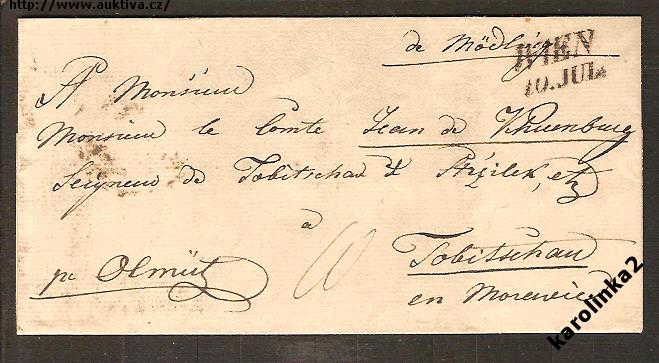 http://www.auktiva.cz/
de Mödling
WIEN
10. JUL.
A Monsieur
Monsieur le Comte Jean de Khuenburg
Seigneur de Tobitschau & Střzilek, etz
à
Tobitschau
pr Olmütz
en Moravie
karolinka2